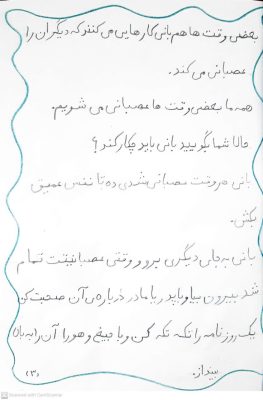 بعضی وقت ها هم بانی کارهایی می کنند که دیگران را
عصبانی می کند.
همه ما بعضی وقت ها عصبانی می شویم.
حالا شما بگویید بانی باید چکار کند؟
بانی هر وقت عصبانی شدی ده تا نفس عمیق
بکش.
بانی به جای دیگری برو و وقتی عصبانیتت تمام
شد بیرون بیا و با پدر یا مادر درباره ی آن صحبت کن
یک روزنامه را تکه تکه کن و با جیغ و هورا آن را به بالا
بیداز.
(۳)
Scanned with CamScanner